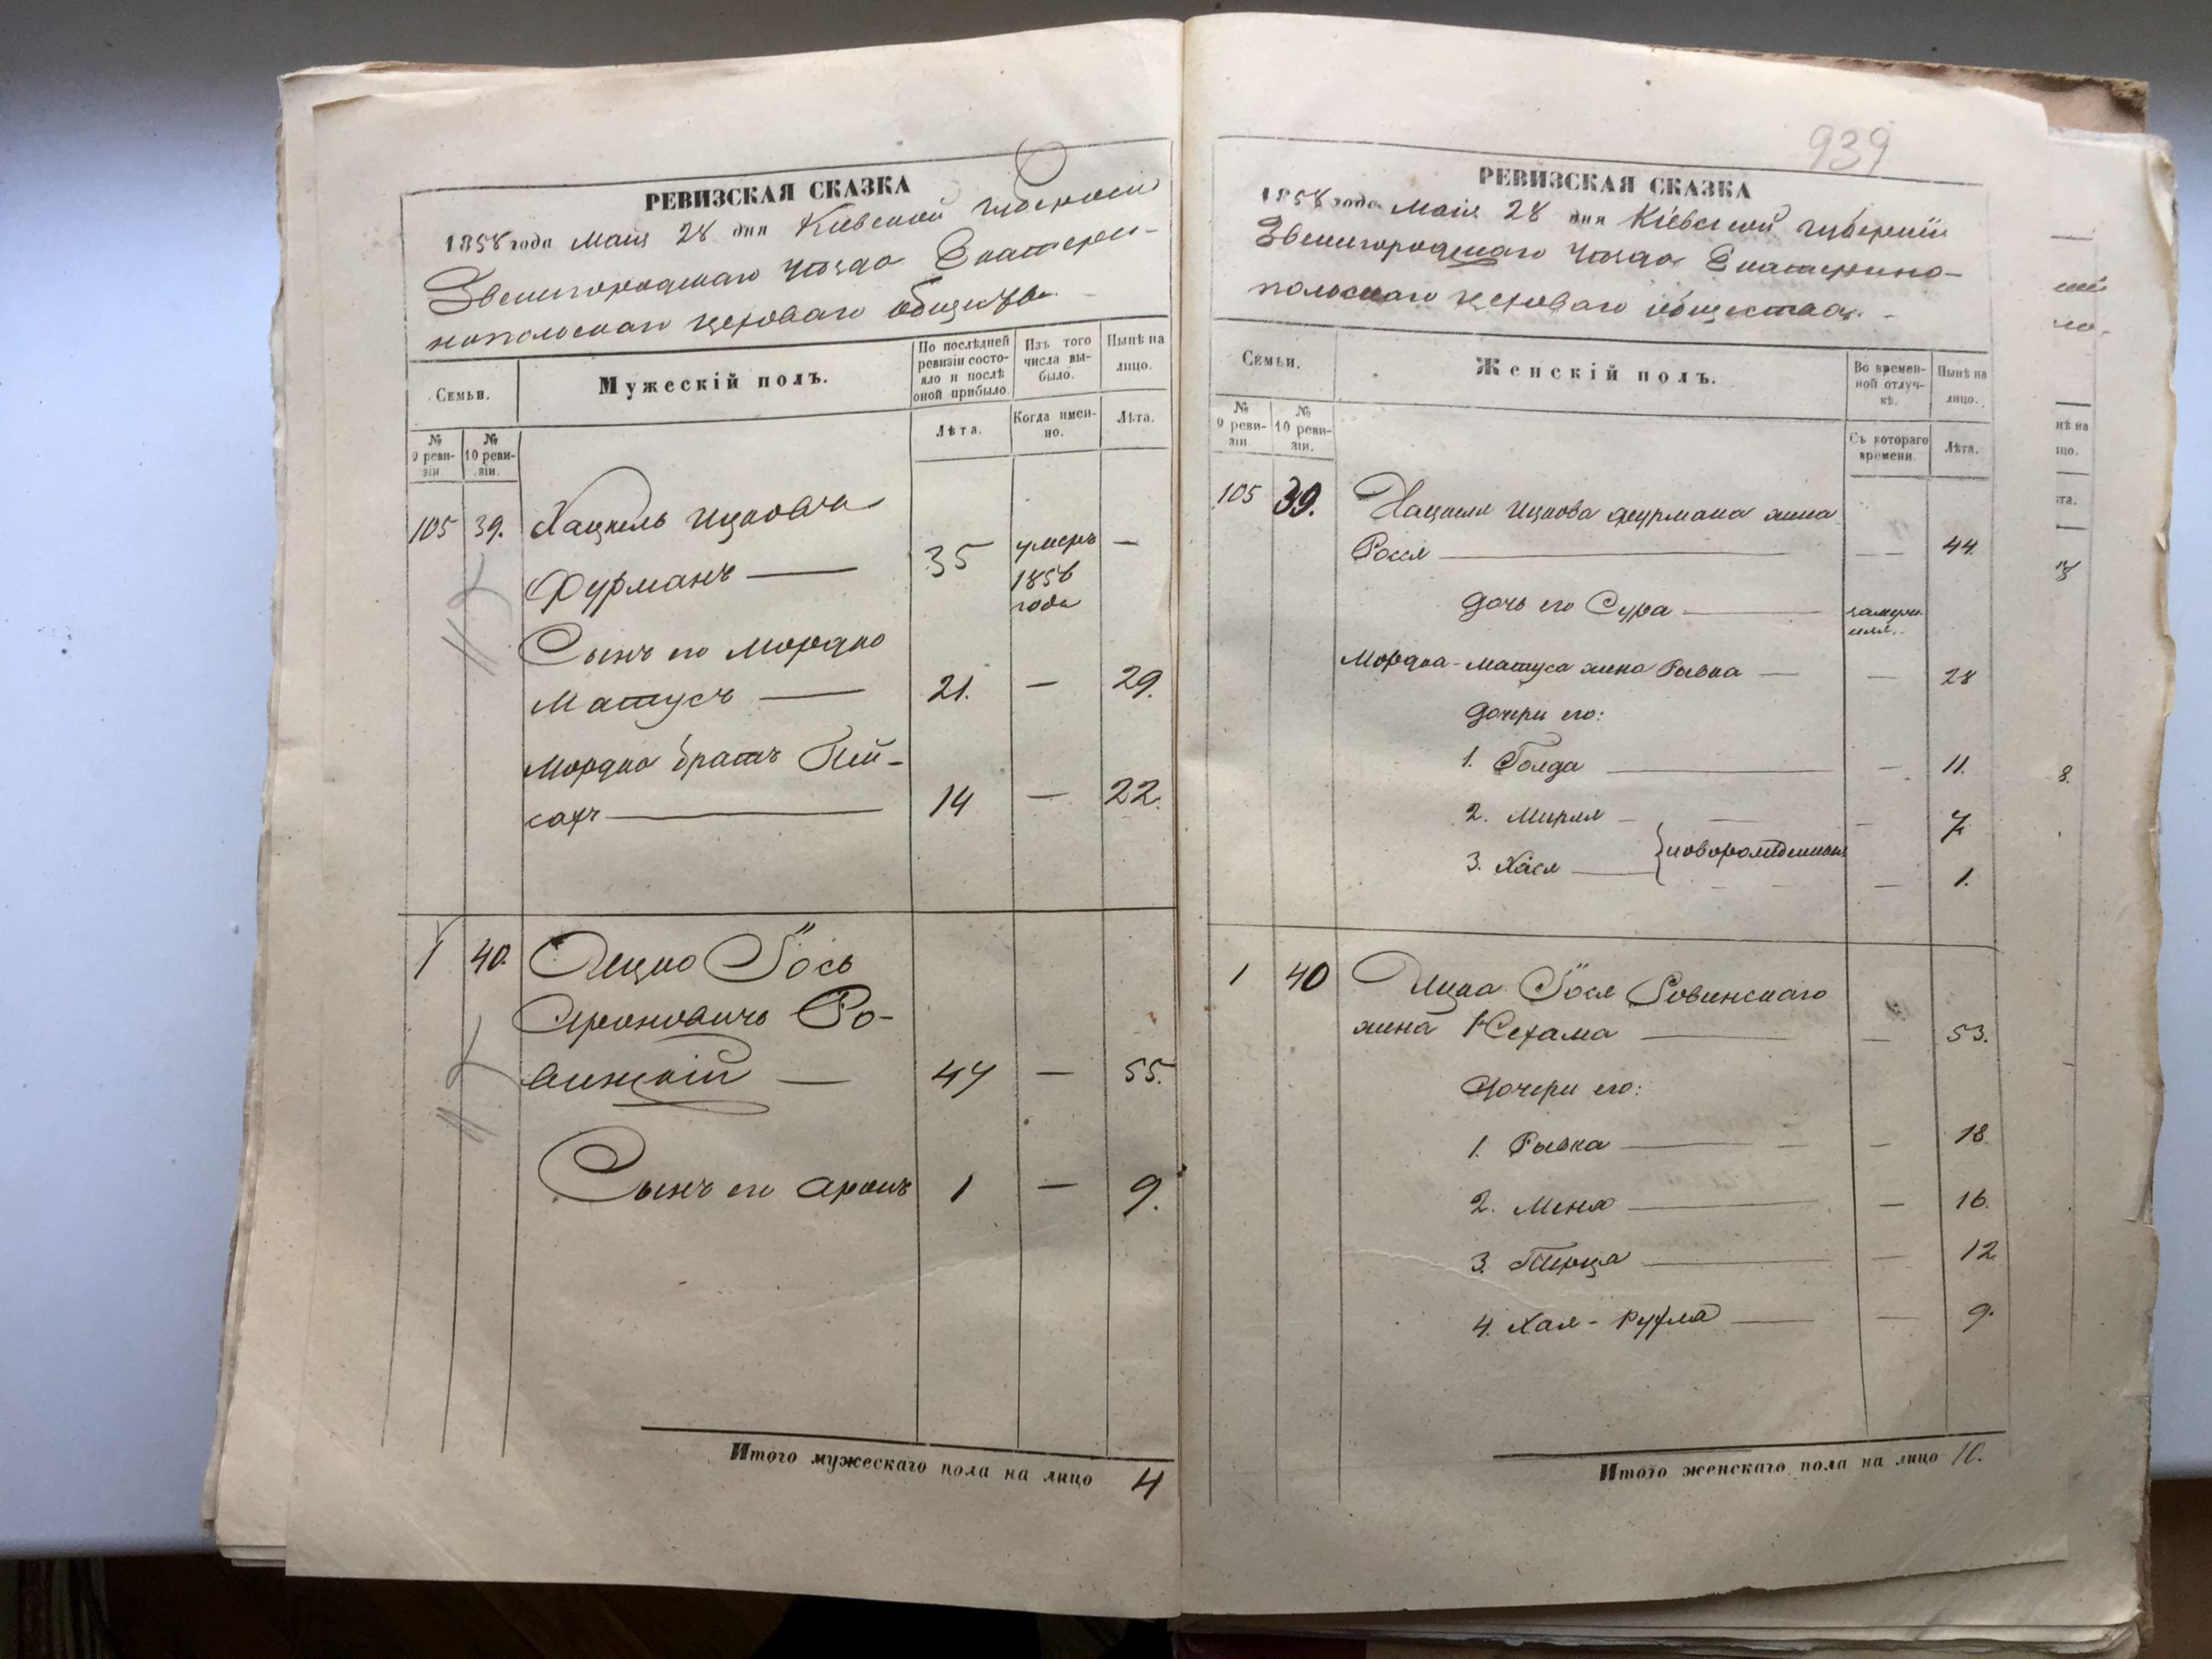 РЕВИЗСКАЯ СКАЗКА
1858 года Маія 28 дня Кіевской губерніи
Звенигородскаго уѣзда Екатери-
нопольскаго цеховаго общества
Семьи.
Мужескій полъ.
По послѣдней ревизіи состо-яло и послѣ оной прибыло.
Изъ того числа вы-было.
Нынѣ на лицо.
№ 9 реви-зіи.
№ 10 реви-зіи.
Лѣта.
Когда имен-но.
Лѣта.
105 39. Хацкель Ицковъ
Фурманъ — 35 умеръ 1856 года —
Сынъ его Мордко
Матусъ — 21. — 29.
Мордка братъ Пей-
сахъ — 14 — 22.
1 40. Ицко Іось
Ароновичъ Ро-
винскій — 47 — 55.
Сынъ его Аронъ 1 — 9.
Итого мужескаго пола на лицо 4
939
РЕВИЗСКАЯ СКАЗКА
1858 года Маія 28 дня Кіевской губерніи
Звенигородскаго уѣзда Екатерино-
польскаго цеховаго общества.
Семьи.
Женскій полъ.
Во времен-ной отлуч-кѣ.
Нынѣ на лицо.
№ 9 реви-зіи.
№ 10 реви-зіи.
Съ котораго времени.
Лѣта.
105 39. Хацкеля Ицкова Фурмана жена
Рося — — 44.
дочь его Сура —
Мордка-Матуса жена Рывка — — 28
дочери его:
1. Голда — — 11.
2. Мирля — — 7.
3. Хася — новорожденныя — 1.
1 40 Ицка Іося Ровинскаго
жена Нехама — — 53.
Дочери его:
1. Рывка — — 18.
2. Меня — — 16.
3. Пирца — — 12.
4. Хая-Рухля — — 9.
Итого женскаго пола на лицо 10.